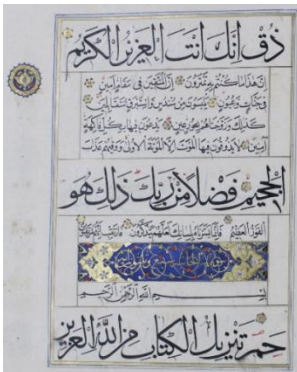 ذُقْ اِنَّكَ اَنْتَ الْعَزِيزُ الْكَرِيمُ
اِنَّ هٰذَا مَا كُنْتُمْ بِهِ تَمْتَرُونَ اِنَّ الْمُتَّقِينَ فِي مَقَامٍ اَمِينٍ
فِي جَنَّاتٍ وَعُيُونٍ يَلْبَسُونَ مِنْ سُنْدُسٍ وَاِسْتَبْرَقٍ مُتَقَابِلِينَ
كَذٰلِكَ وَزَوَّجْنَاهُمْ بِحُورٍ عِينٍ يَدْعُونَ فِيهَا بِكُلِّ فَاكِهَةٍ
آمِنِينَ لَا يَذُوقُونَ فِيهَا الْمَوْتَ اِلَّا الْمَوْتَةَ الْاُولٰى وَوَقٰيهُمْ عَذَابَ
الْجَحِيمِ فَضْلًا مِنْ رَبِّكَ ذٰلِكَ هُوَ
الْفَوْزُ الْعَظِيمُ فَاِنَّمَا يَسَّرْنَاهُ بِلِسَانِكَ لَعَلَّهُمْ يَتَذَكَّرُونَ فَارْتَقِبْ اِنَّهُمْ مُرْتَقِبُونَ
بِسْمِ اللّٰهِ الرَّحْمٰنِ الرَّحِيمِ
حم تَنْزِيلُ الْكِتَابِ مِنَ اللّٰهِ الْعَزِيزِ